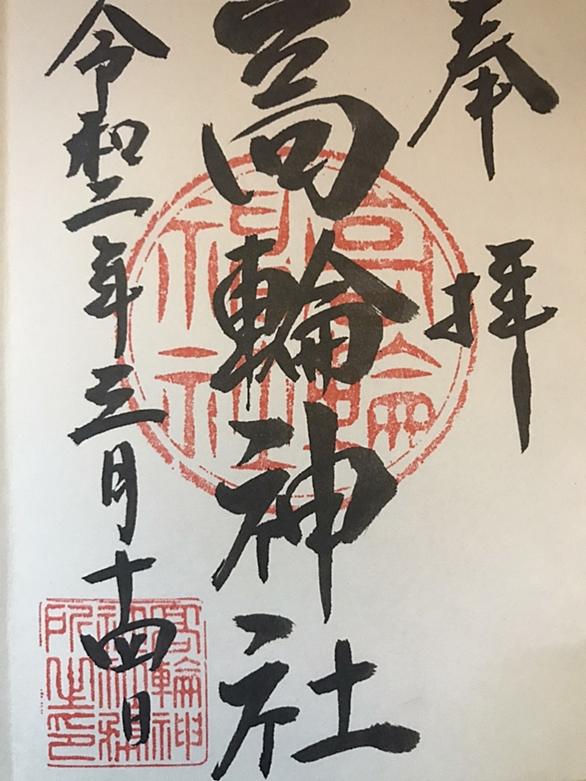 奉拝
高輪神社
令和二年三月十四日
高輪
神社
高輪神
社社務
所之印